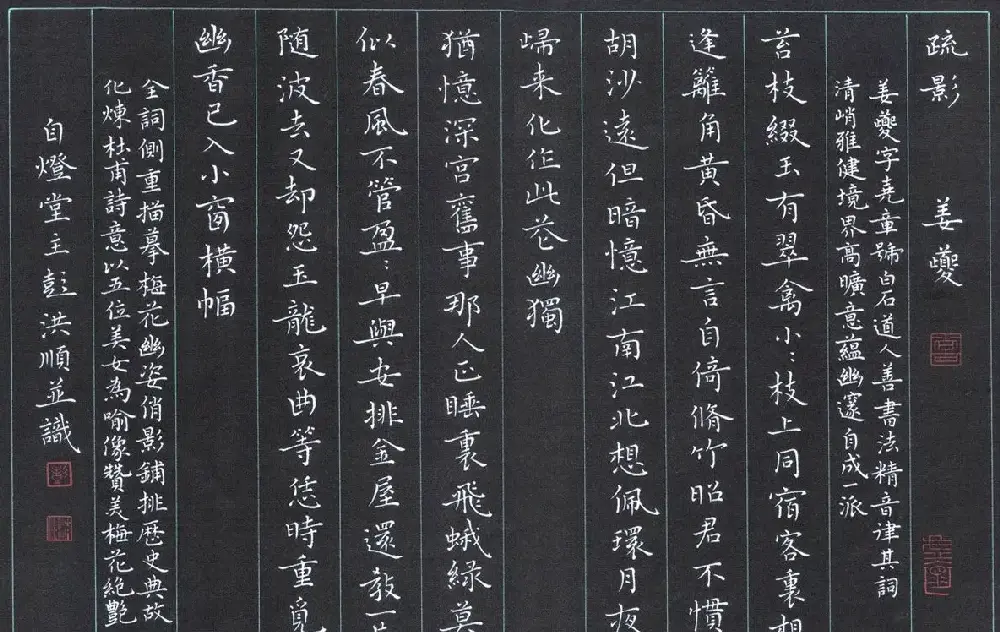 疏影 姜夔
姜夔字堯章號白石道人善書法精音律其詞
清峭雅健境界高曠意蘊幽邃自成一派
苔枝綴玉有翠禽小:枝上同宿客裏相
逢籬角黄昏無言自倚脩竹昭君不慣
胡沙遠但暗憶江南江北想佩環月夜
歸来化作此花幽獨
猶憶深宫舊事那人正睡裏飛蛾綠莫
似春風不管盈:早與安排金屋還教一片
随波去又却怨玉龍哀曲等恁時重覓
幽香已入小窗横幅
全詞側重描摹梅花幽姿俏影鋪排歷史典故
化煉杜甫詩意以五位美女為喻像贊美梅花絶艷
自燈堂主彭洪順並識